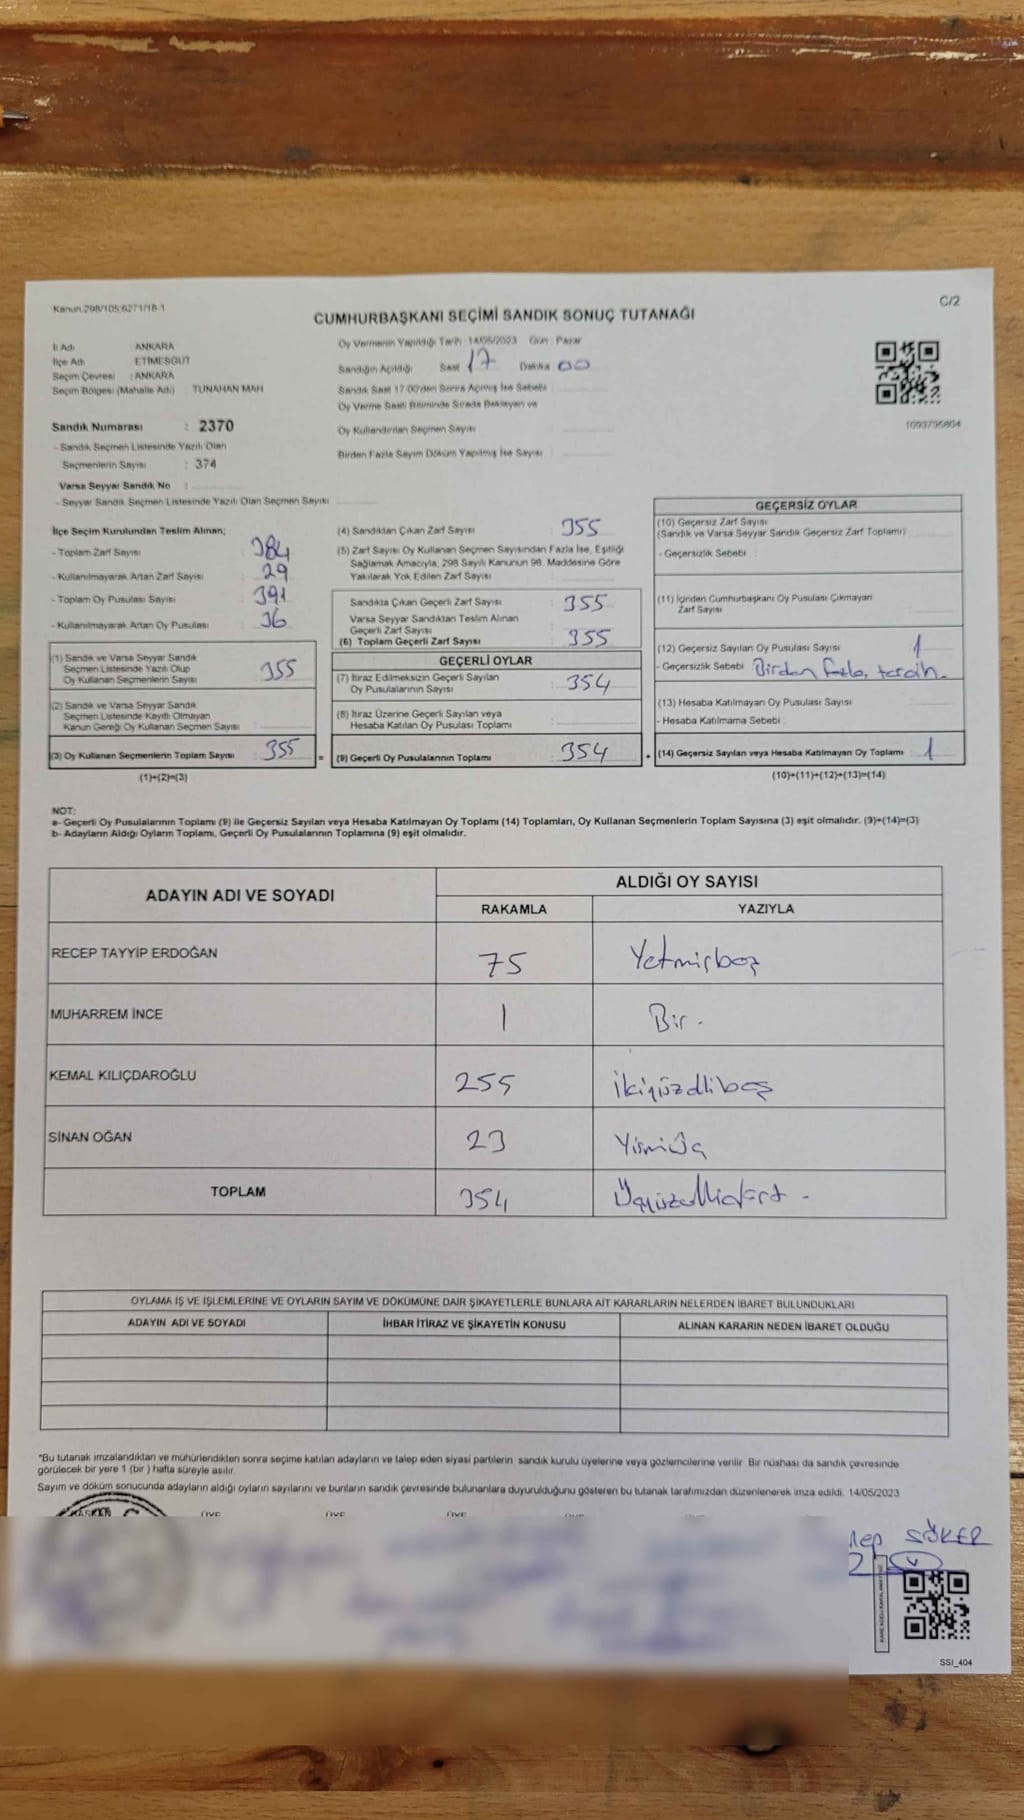 Kanun:298/105;6271/18-1
C/2
CUMHURBAŞKANI SEÇİMİ SANDIK SONUÇ TUTANAĞI
İl Adı : ANKARA
İlçe Adı : ETİMESGUT
Seçim Çevresi : ANKARA
Seçim Bölgesi (Mahalle Adı) : TUNAHAN MAH
Sandık Numarası : 2370
- Sandık Seçmen Listesinde Yazılı Olan
Seçmenlerin Sayısı : 374
Varsa Seyyar Sandık No :
- Seyyar Sandık Seçmen Listesinde Yazılı Olan Seçmen Sayısı
Oy Vermenin Yapıldığı Tarih : 14/05/2023 Gün : Pazar
Sandığın Açıldığı Saat 17 Dakika 00
Sandık Saat 17:00'den Sonra Açılmış İse Sebebi :
Oy Verme Saati Bitiminde Sırada Bekleyen ve
Oy Kullandırılan Seçmen Sayısı :
Birden Fazla Sayım Döküm Yapılmış İse Sayısı :
1093795804
İlçe Seçim Kurulundan Teslim Alınan;
- Toplam Zarf Sayısı : 384
- Kullanılmayarak Artan Zarf Sayısı : 29
- Toplam Oy Pusulası Sayısı : 391
- Kullanılmayarak Artan Oy Pusulası : 36
(1) Sandık ve Varsa Seyyar Sandık
Seçmen Listesinde Yazılı Olup
Oy Kullanan Seçmenlerin Sayısı : 355
(2) Sandık ve Varsa Seyyar Sandık
Seçmen Listesinde Kayıtlı Olmayan
Kanun Gereği Oy Kullanan Seçmen Sayısı :
(3) Oy Kullanan Seçmenlerin Toplam Sayısı : 355
(1)+(2)=(3)
(4) Sandıktan Çıkan Zarf Sayısı : 355
(5) Zarf Sayısı Oy Kullanan Seçmen Sayısından Fazla İse, Eşitliği
Sağlamak Amacıyla, 298 Sayılı Kanunun 98. Maddesine Göre
Yakılarak Yok Edilen Zarf Sayısı :
Sandıkta Çıkan Geçerli Zarf Sayısı : 355
Varsa Seyyar Sandıktan Teslim Alınan
Geçerli Zarf Sayısı :
(6) Toplam Geçerli Zarf Sayısı : 355
GEÇERLİ OYLAR
(7) İtiraz Edilmeksizin Geçerli Sayılan
Oy Pusulalarının Sayısı : 354
(8) İtiraz Üzerine Geçerli Sayılan veya
Hesaba Katılan Oy Pusulası Toplamı :
= (9) Geçerli Oy Pusulalarının Toplamı : 354
GEÇERSİZ OYLAR
(10) Geçersiz Zarf Sayısı
(Sandık ve Varsa Seyyar Sandık Geçersiz Zarf Toplamı) :
- Geçersizlik Sebebi :
(11) İçinden Cumhurbaşkanı Oy Pusulası Çıkmayan
Zarf Sayısı :
(12) Geçersiz Sayılan Oy Pusulası Sayısı : 1
- Geçersizlik Sebebi : Birden fazla tercih.
(13) Hesaba Katılmayan Oy Pusulası Sayısı :
- Hesaba Katılmama Sebebi :
+ (14) Geçersiz Sayılan veya Hesaba Katılmayan Oy Toplamı : 1
(10)+(11)+(12)+(13)=(14)
NOT:
a- Geçerli Oy Pusulalarının Toplamı (9) ile Geçersiz Sayılan veya Hesaba Katılmayan Oy Toplamı (14) Toplamları, Oy Kullanan Seçmenlerin Toplam Sayısına (3) eşit olmalıdır. (9)+(14)=(3)
b- Adayların Aldığı Oyların Toplamı, Geçerli Oy Pusulalarının Toplamına (9) eşit olmalıdır.
ADAYIN ADI VE SOYADI
ALDIĞI OY SAYISI
RAKAMLA YAZIYLA
RECEP TAYYİP ERDOĞAN 75 Yetmişbeş
MUHARREM İNCE 1 Bir.
KEMAL KILIÇDAROĞLU 255 İkiyüzellibeş
SİNAN OĞAN 23 Yirmiüç
TOPLAM 354 Üçyüzellidört.
OYLAMA İŞ VE İŞLEMLERİNE VE OYLARIN SAYIM VE DÖKÜMÜNE DAİR ŞİKAYETLERLE BUNLARA AİT KARARLARIN NELERDEN İBARET BULUNDUKLARI
ADAYIN ADI VE SOYADI İHBAR İTİRAZ VE ŞİKAYETİN KONUSU ALINAN KARARIN NEDEN İBARET OLDUĞU
*Bu tutanak imzalandıktan ve mühürlendikten sonra seçime katılan adayların ve talep eden siyasi partilerin sandık kurulu üyelerine veya gözlemcilerine verilir. Bir nüshası da sandık çevresinde
görülecek bir yere 1 (bir ) hafta süreyle asılır.
Sayım ve döküm sonucunda adayların aldığı oyların sayılarını ve bunların sandık çevresinde bulunanlara duyurulduğunu gösteren bu tutanak tarafımızdan düzenlenerek imza edildi. 14/05/2023
BAŞKAN ÜYE ÜYE ÜYE ÜYE
SÖKER
SSI_404